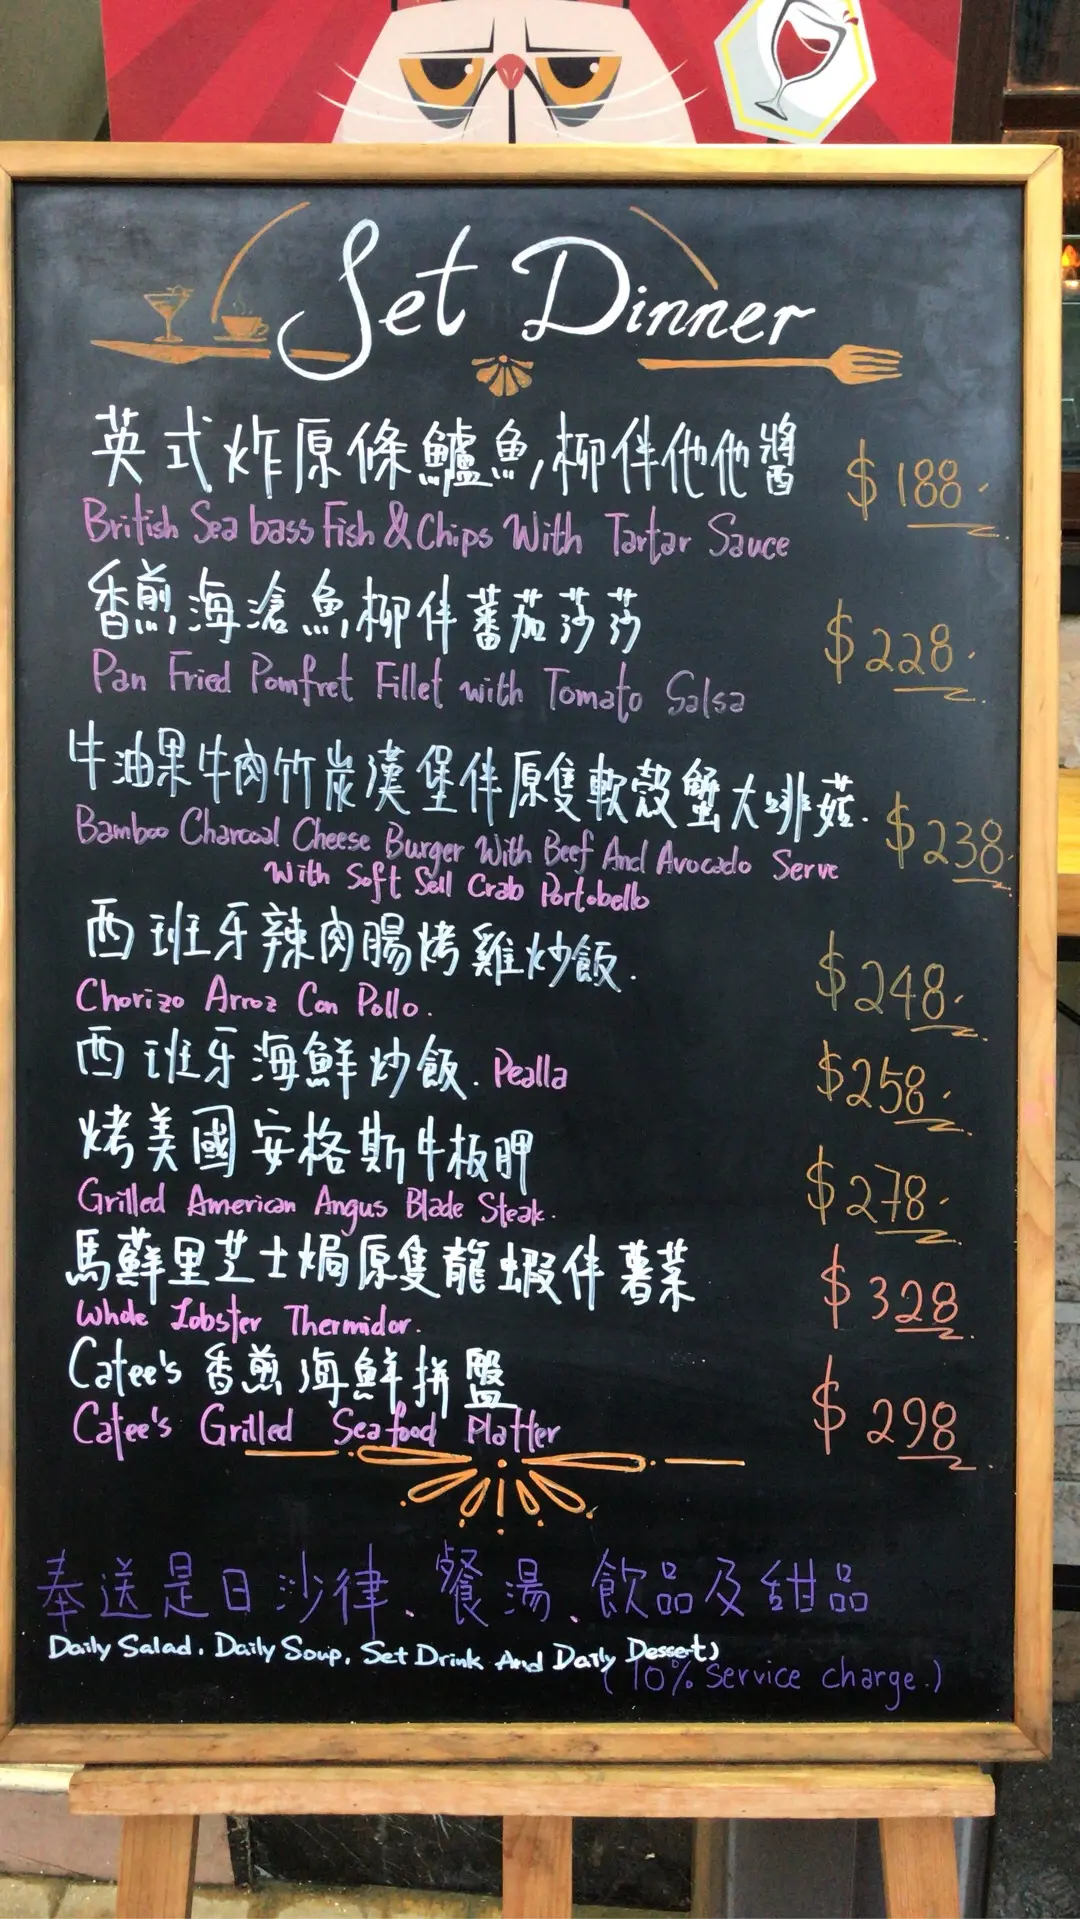 Set Dinner
英式炸原條鱸魚柳伴他他醬 $188.
British Sea bass Fish & Chips With Tartar Sauce
香煎海滄魚柳伴蕃茄莎莎 $228.
Pan Fried Pomfret Fillet with Tomato Salsa
牛油果牛肉竹炭漢堡伴原隻軟殼蟹大啡菇. $238.
Bamboo Charcoal Cheese Burger With Beef And Avocado Serve
With Soft Sell Crab Portobello
西班牙辣肉腸烤雞炒飯. $248.
Chorizo Arroz Con Pollo.
西班牙海鮮炒飯. Pealla $258.
烤美國安格斯牛板胛 $278.
Grilled American Angus Blade Steak.
馬蘇里芝士焗原隻龍蝦伴薯菜 $328
Whole Lobster Thermidor.
Catee's 香煎海鮮拼盤 $298
Catee's Grilled Seafood Platter
奉送是日沙律、餐湯、飲品及甜品
Daily Salad. Daily Soup. Set Drink And Daily Dessert)
(10% Service charge.)